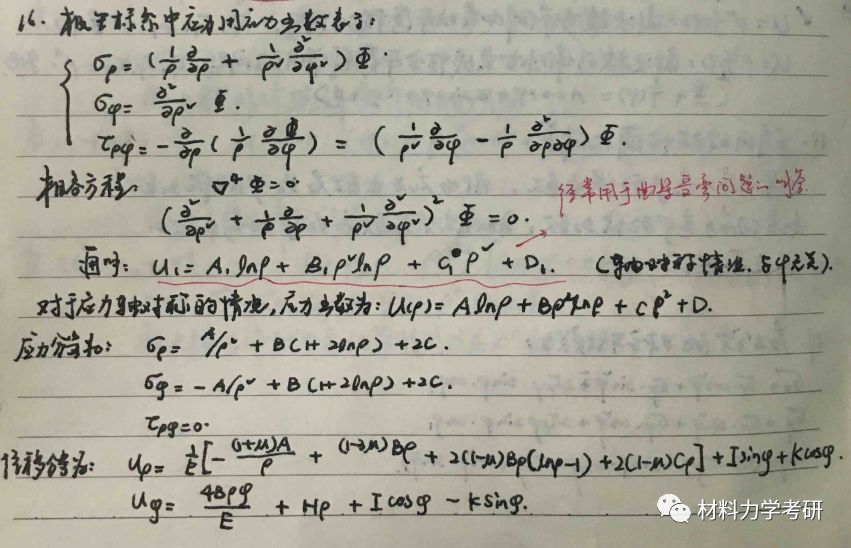 16. 极坐标系中应力用应力函数表示:
σρ = (1/ρ ∂/∂ρ + 1/ρ² ∂²/∂φ²) Φ.
σφ = ∂²/∂ρ² Φ.
τρφ = -∂/∂ρ (1/ρ ∂Φ/∂φ) = (1/ρ² ∂/∂φ - 1/ρ ∂²/∂ρ∂φ) Φ.
相容方程: ∇⁴Φ=0
经常用于曲梁受弯问题
(∂²/∂ρ² + 1/ρ ∂/∂ρ + 1/ρ² ∂²/∂φ²)² Φ = 0.
通解: U₁ = A₁lnρ + B₁ρ²lnρ + C₁ρ² + D₁. (轴对称情况, 与φ无关).
对于应力轴对称的情况, 应力函数为: U(ρ) = Alnρ + Bρ²lnρ + Cρ² + D.
应力分量为: σρ = A/ρ² + B(1+2lnρ) + 2C.
σφ = -A/ρ² + B(1+2lnρ) + 2C.
τρφ=0.
位移分量为: uρ = 1/E [-(1+μ)A/ρ + (1-3μ)Bρ + 2(1-μ)Bρ(lnρ-1) + 2(1-μ)Cρ] + Isinφ + Kcosφ.
uφ = 4Bρφ/E + Hρ + Icosφ - Ksinφ.
材料力学考研